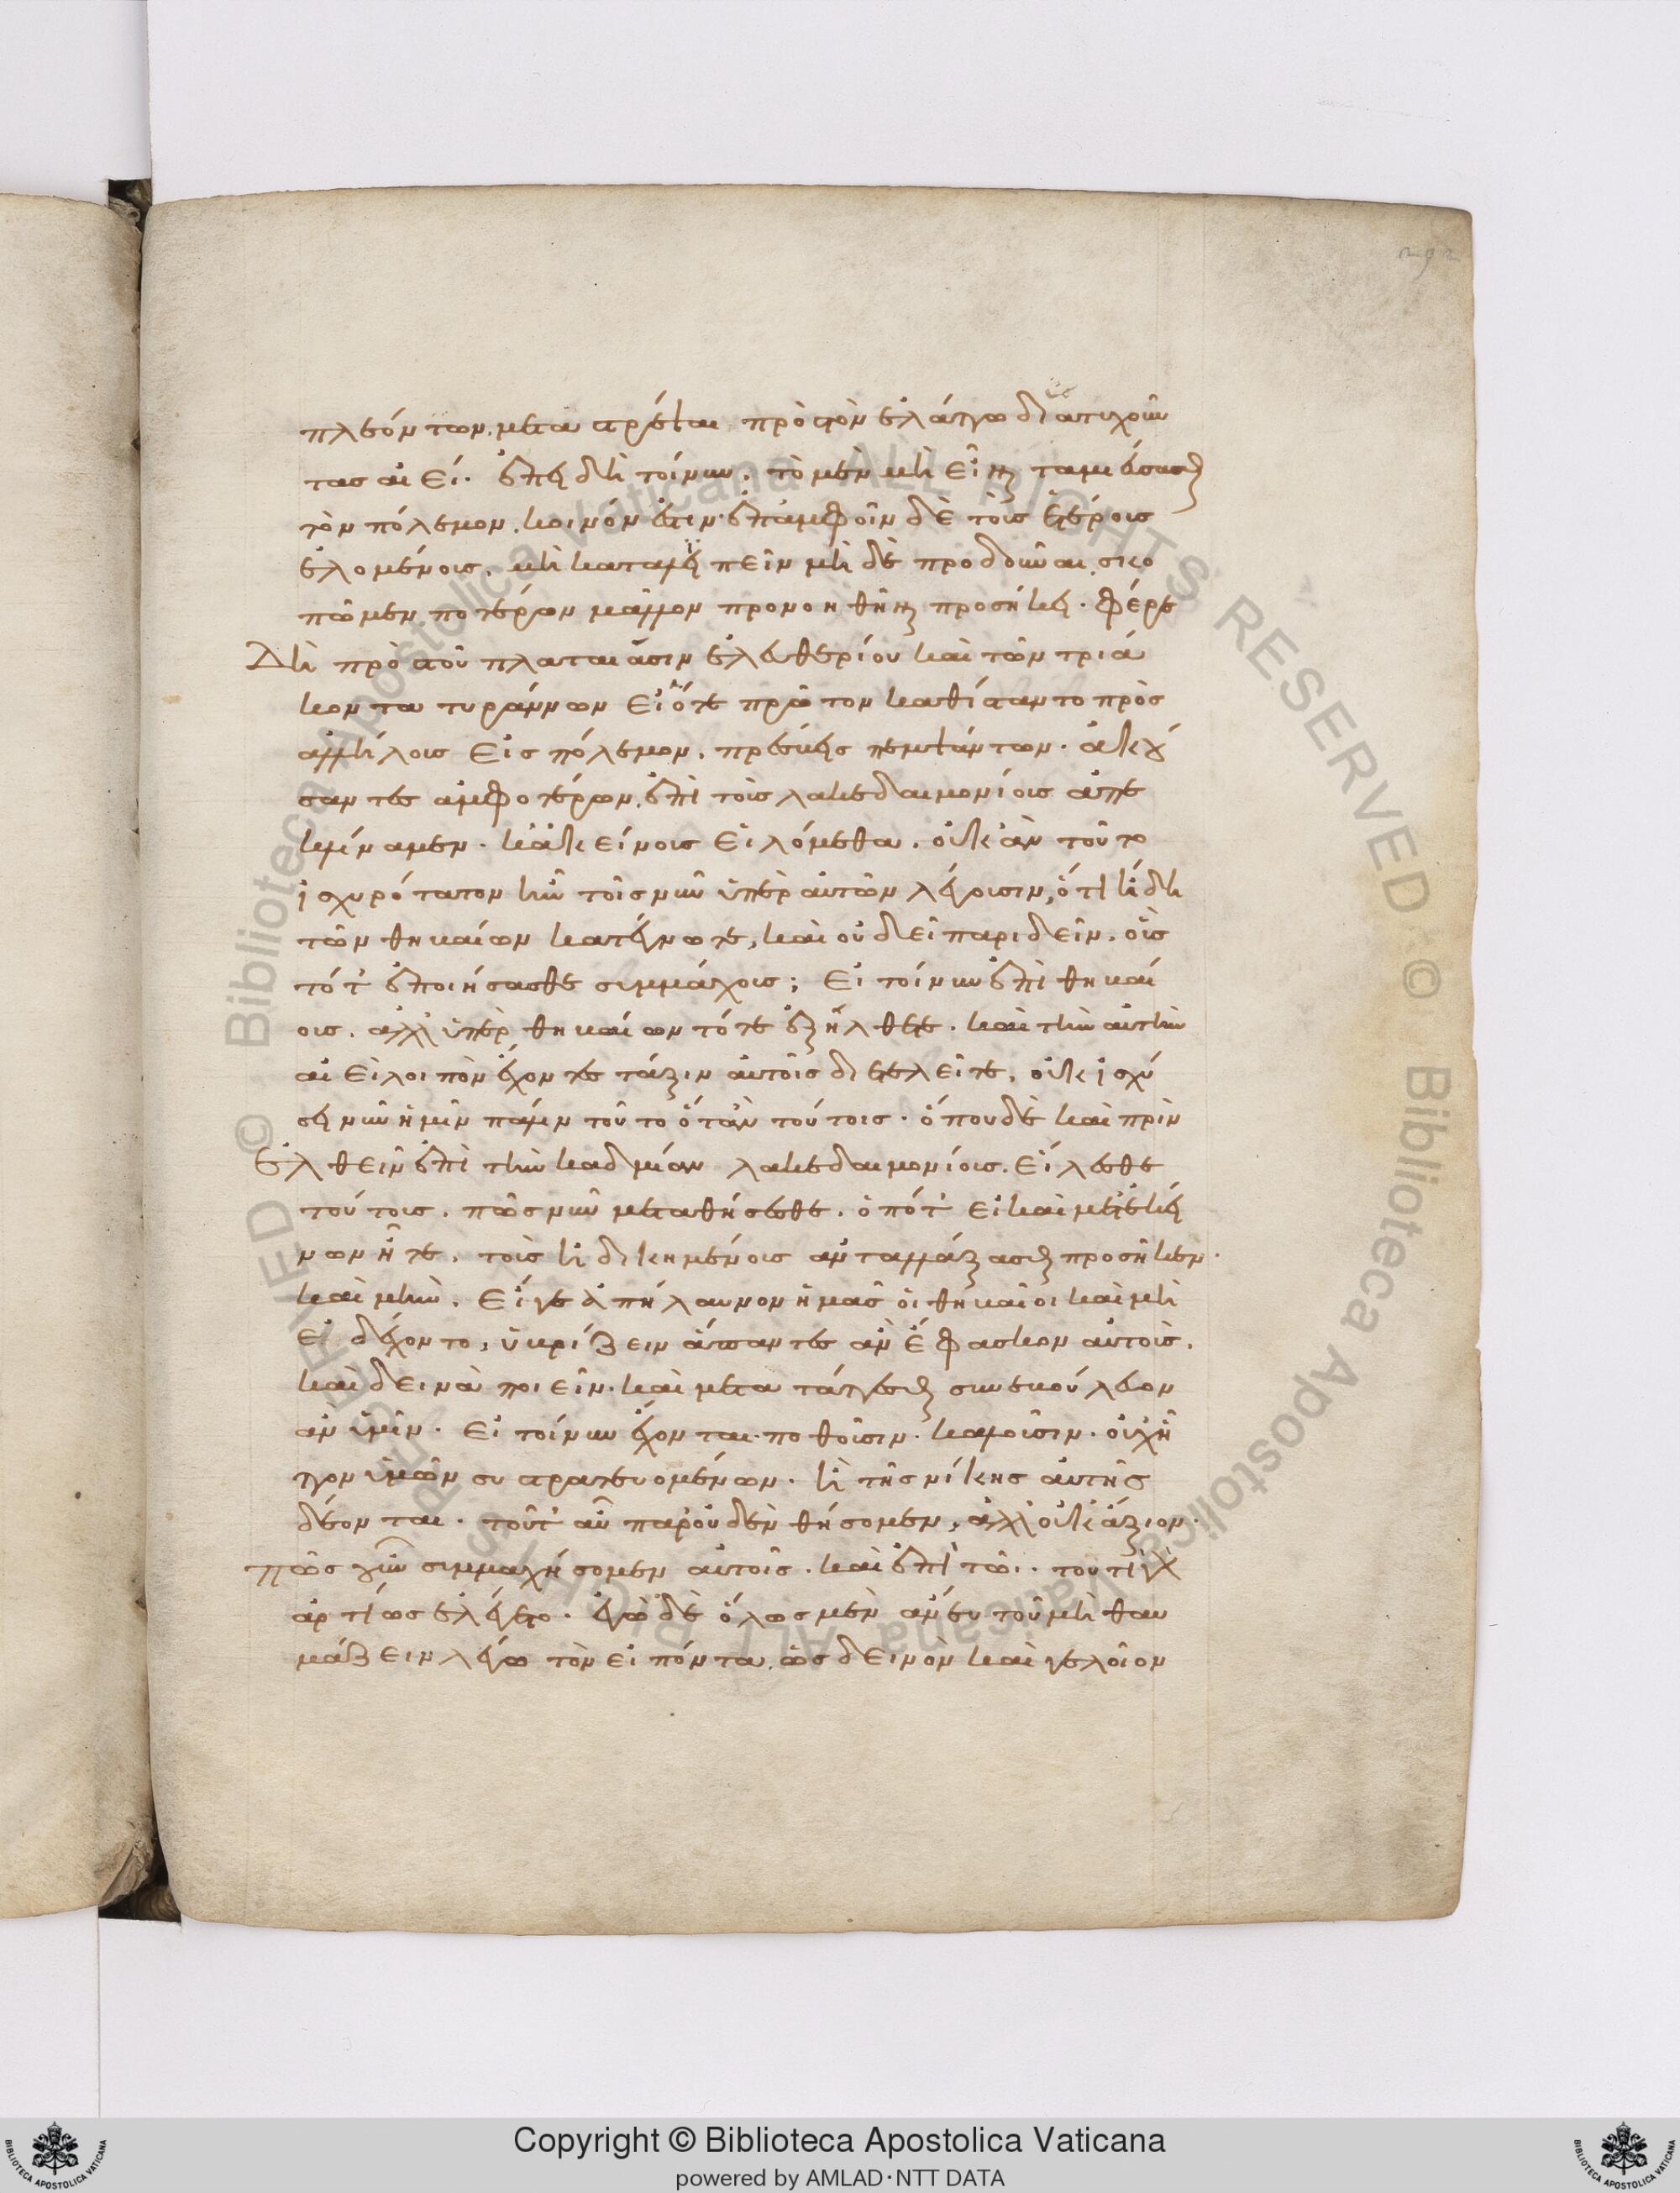 πλεόντων. μεταστρέψαι πρὸς τὸν ἐλάττω δυστυχοῦν
τας αἰεί. ἔπει δὴ τοίνυν. τὸ μὲν μὴ εἶναι ταμιεύσασθαι
τὸν πόλεμον. κοινόν ἐστιν ἐπ' ἀμφοῖν δὲ τοῖς ἑτέροις
ἑλομένοις. μὴ καταλιπεῖν μὴ δὲ προδοῦναι. σκο
πῶμεν ποτέρων μᾶλλον προνοηθῆναι προσήκει. φέρε
Δὴ πρὸς τοῦ πλαταιᾶσιν ἐλευθερίου καὶ τῶν τριά
κοντα τυράννων εἰ ὅτε πρῶτον καθίσταντο πρὸς
ἀλλήλους εἰς πόλεμον. πρέσβεις πεμψάντων. ἀκού
σαντες ἀμφοτέρων. ἐπὶ τοῖς λακεδαιμονίοις ἀπε
κρίναμεν. κἀκείνοις εἱλόμεθα. οὐκ ἂν τοῦτο
ἰσχυρότατον ἦν τοῖς νῦν ὑπὲρ αὐτῶν λέγουσιν, ὅτι ἤδη
τῶν θηβαίων κατέγνωτε, καὶ οὐ δεῖ παριδεῖν. οὓς
τότ' ἐποιήσασθε συμμάχους; Εἰ τοίνυν ἐπὶ θηβαί
οις. ἀλλ' ὑπὲρ θηβαίων τότε ἐξήλθετε. καὶ τὴν αὐτὴν
αἰεὶ λοιπὸν ἔχοντες τάξιν αὐτοῖς διετελεῖτε, οὐκ ἰσχύ
σει νῦν ἡμῖν πάλιν τοῦτο ὅταν τούτοις. ὅπου δὲ καὶ πρὶν
ἐλθεῖν ἐπὶ τὴν καδμείαν λακεδαιμονίοις. εἵλεσθε
τούτοις. πῶς νῦν μεταθήσεσθε. ὁπότ' εἰ καὶ μετ' ἐκεί
νων ἦτε. τοῖς ἠδικημένοις ἀνταλλάξασθαι προσῆκεν.
καὶ μὴν. εἴ γε ἀπήλαυνον ἡμᾶς οἱ θηβαῖοι καὶ μὴ
ἐδέχοντο, ὑβρίζειν ἅπαντες ἂν ἔφασκον αὐτοὺς.
καὶ δεινὰ ποιεῖν. καὶ μετατάττεσθαι συνεβούλευον
ἂν ὑμῖν. εἰ τοίνυν ἔχονται. ποθοῦσιν. καλοῦσιν. οὐχ ἧτ
τον ὑμῶν συστρατευομένων. ἢ τῆς νίκης αὐτῆς
δέονται. τοῦτ' αὖ παρ' οὐδὲν θήσομεν, ἀλλ' οὐκ ἄξιον.
πῶς γοῦν συμμαχήσομεν αὐτοῖς. καὶ ἐπὶ τῷ. τουτὶ γὰρ
ἀρτίως ἐλέγετο. ἐγὼ δὲ ὅλως μὲν ἄνευ τοῦ μὴ θαυ
μάζειν λέγω τὸν εἰπόντα. ὡς δεινὸν καὶ γελοῖον
Copyright © Biblioteca Apostolica Vaticana
powered by AMLAD·NTT DATA